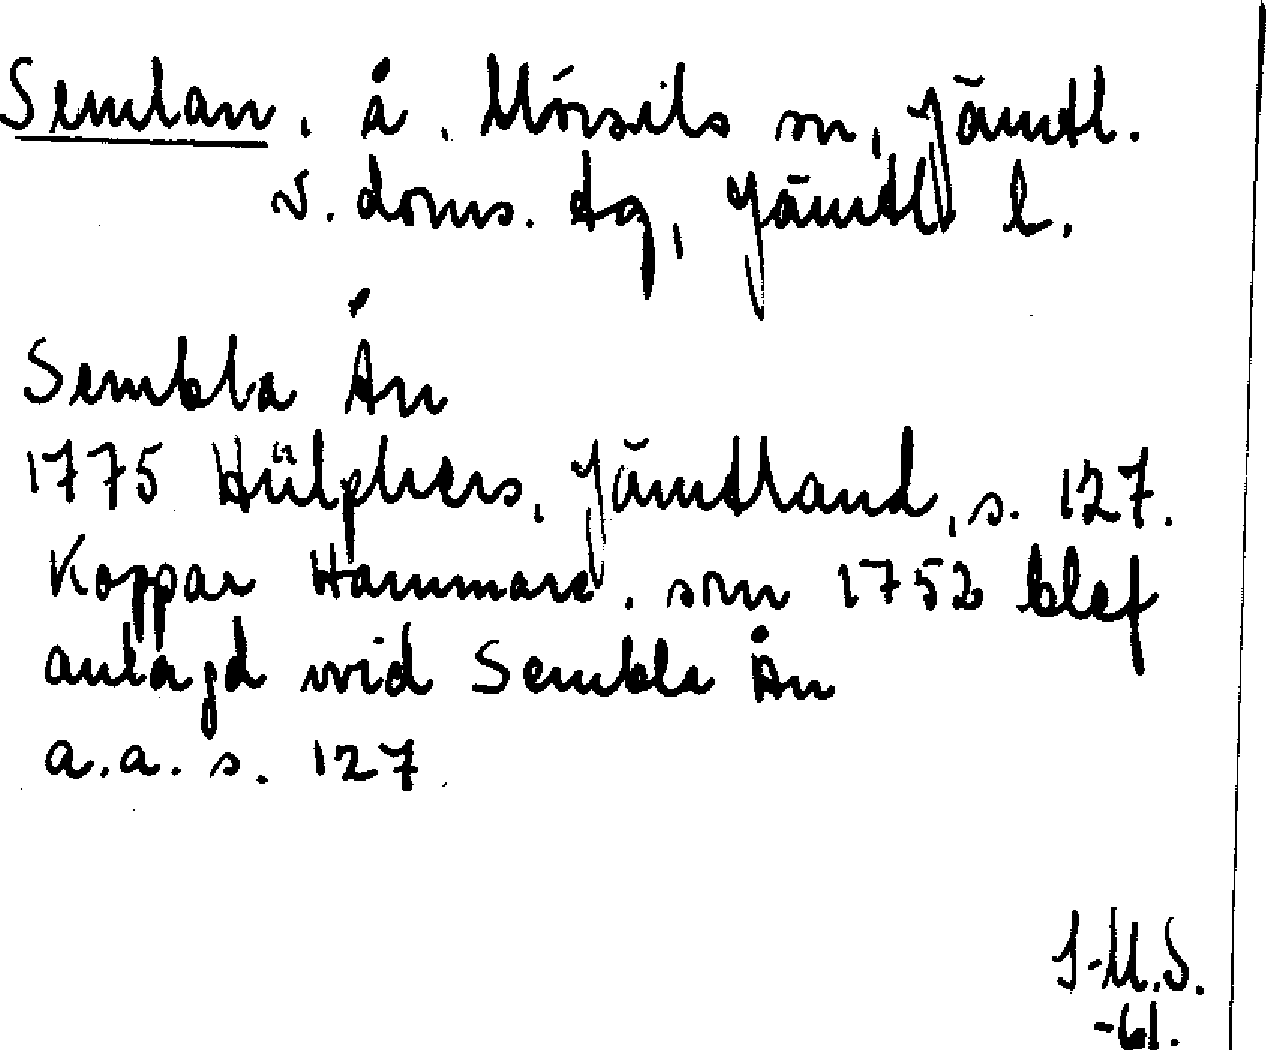 Semlan, å, Mörsils sn, Jämtl.
v. doms. dg, Jämtl l.
Sembla Ån
1775 Hülphers, Jämtland, s. 127.
Koppar Hammare, som 1752 blef
anlagd wid Sembla Ån
a.a. s. 127.
I-M.S.
-61.